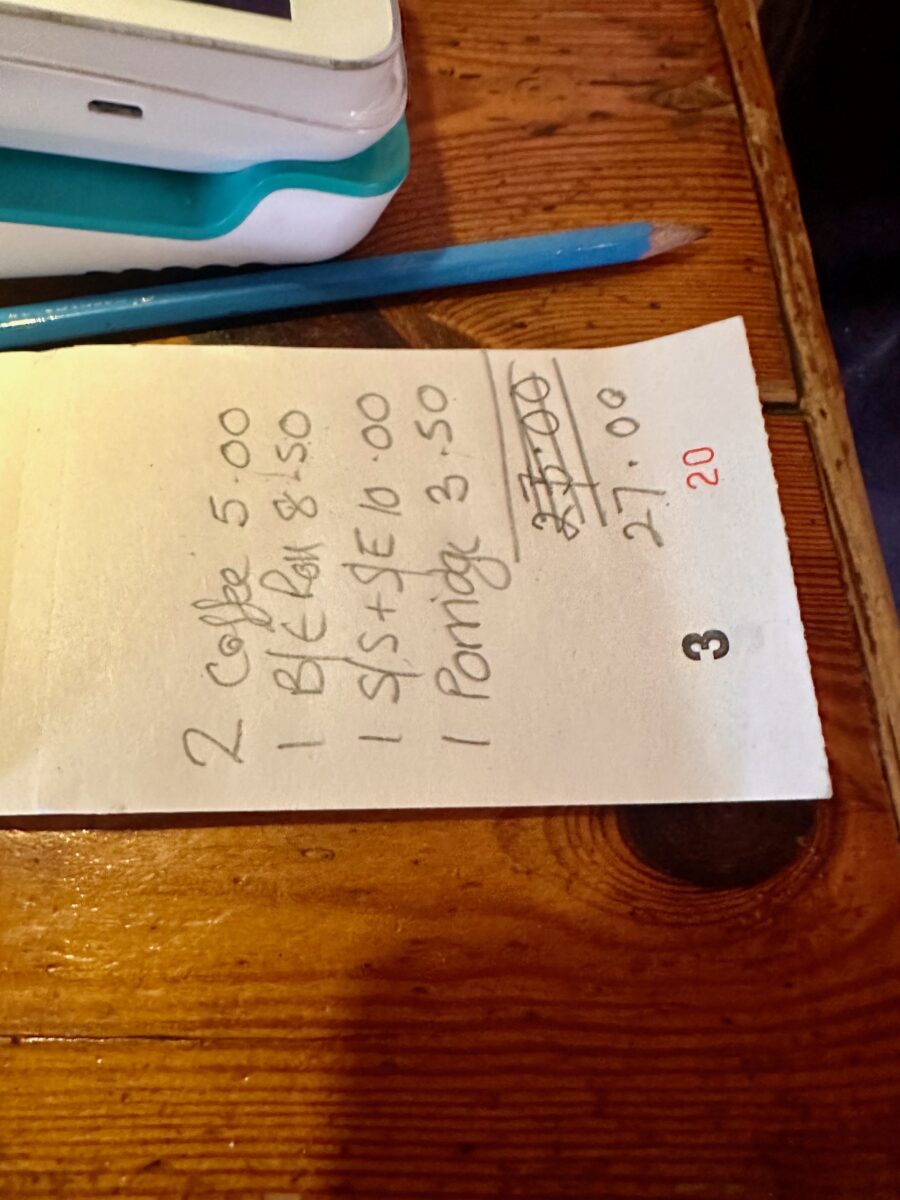 2 Coffee 5.00
1 B/E Roll 8.50
1 S/S+S/E 10.00
1 Porridge 3.50
27.00
3 20